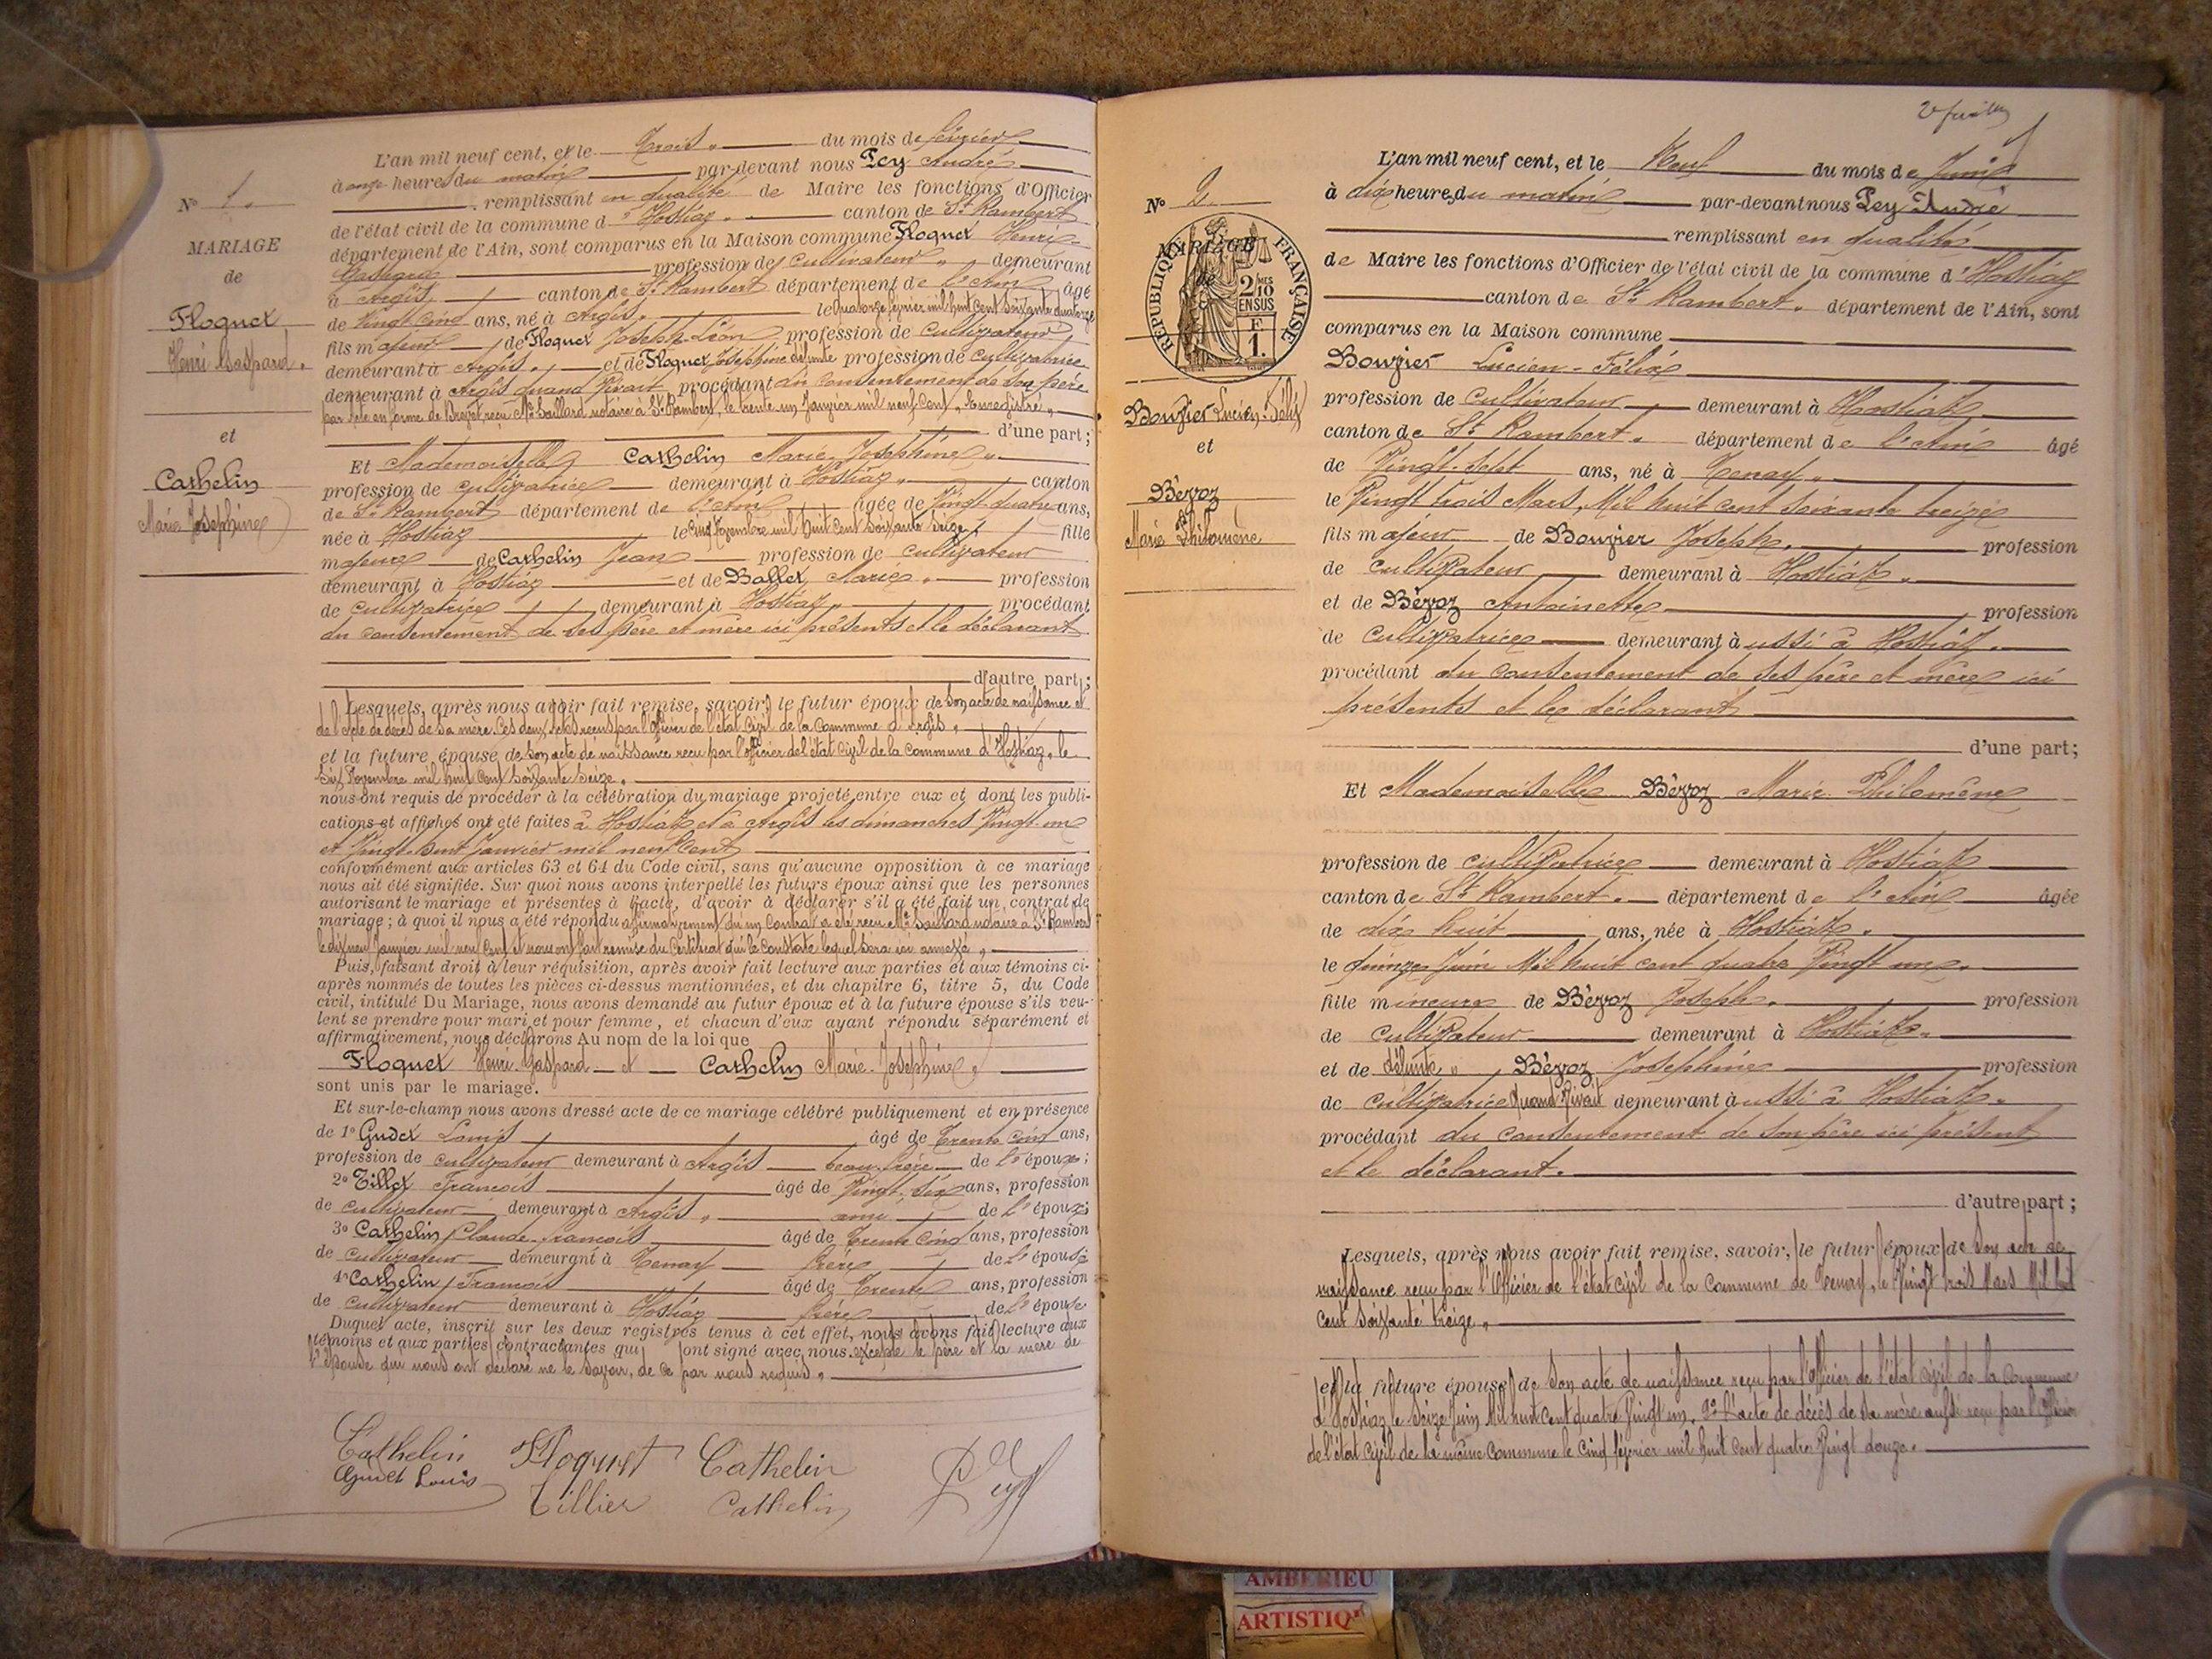 N° 1.
MARIAGE
de
Floquet
Henri Gaspard.
et
Cathelin
Marie Joséphine
L'an mil neuf cent, et le Trois du mois de février
à onze heures du matin par-devant nous Pey André
remplissant en qualité de Maire les fonctions d'Officier
de l'état civil de la commune d'Hostiaz. canton de St Rambert
département de l'Ain, sont comparus en la Maison commune Floquet Henri
Gaspard profession de cultivateur demeurant
à Argis canton de St Rambert département de l'Ain âgé
de Vingt cinq ans, né à Argis. le quatorze février mil huit cent soixante quatorze
fils majeur de Floquet Joseph Léon profession de cultivateur
demeurant à Argis. et de Floquet Joséphine défunte profession de cultivatrice
demeurant à Argis quand Vivait procédant du consentement de son père
par acte en forme de Brevet, reçu Me Saillard notaire à St Rambert, le trente un Janvier mil neuf cent, Enregistré
d'une part;
Et Mademoiselle Cathelin Marie Joséphine
profession de cultivatrice demeurant à Hostiaz canton
de St Rambert département de l'Ain âgée de Vingt quatre ans,
née à Hostiaz le cinq Novembre mil huit cent soixante seize fille
majeure de Cathelin Jean profession de cultivateur
demeurant à Hostiaz et de Ballet Marie. profession
de cultivatrice demeurant à Hostiaz procédant
du consentement de ses père et mère ici présents et le déclarant
d'autre part;
Lesquels, après nous avoir fait remise, savoir, le futur époux de son acte de naissance et
de l'acte de décès de sa mère. Ces deux actes reçus par l'officier de l'état civil de la commune d'Argis.
et la future épouse de son acte de naissance reçu par l'officier de l'état civil de la commune d'Hostiaz, le
six Novembre mil huit cent soixante seize.
nous ont requis de procéder à la célébration du mariage projeté entre eux et dont les publi-
cations et affiches ont été faites à Hostiaz et à Argis les dimanches Vingt un
et Vingt huit Janvier mil neuf Cent
conformément aux articles 63 et 64 du Code civil, sans qu'aucune opposition à ce mariage
nous ait été signifiée. Sur quoi nous avons interpellé les futurs époux ainsi que les personnes
autorisant le mariage et présentes à l'acte, d'avoir à déclarer s'il a été fait un contrat de
mariage; à quoi il nous a été répondu affirmativement qu'un Contrat a été reçu Me Saillard notaire à St Rambert
le dix neuf Janvier mil neuf Cent et nous ont fait remise du Certificat qui le constate lequel sera ici annexé
Puis, faisant droit à leur réquisition, après avoir fait lecture aux parties et aux témoins ci-
après nommés de toutes les pièces ci-dessus mentionnées, et du chapitre 6, titre 5, du Code
civil, intitulé Du Mariage, nous avons demandé au futur époux et à la future épouse s'ils veu-
lent se prendre pour mari et pour femme, et chacun d'eux ayant répondu séparément et
affirmativement, nous déclarons Au nom de la loi que
Floquet Henri Gaspard et Cathelin Marie Joséphine
sont unis par le mariage.
Et sur-le-champ nous avons dressé acte de ce mariage célébré publiquement et en présence
de 1° Gudet Louis âgé de Trente cinq ans,
profession de cultivateur demeurant à Argis beau frère de l'époux;
2° Tillet François âgé de Vingt six ans, profession
de cultivateur demeurant à Argis ami de l'époux;
3° Cathelin Claude François âgé de Trente Cinq ans, profession
de cultivateur demeurant à Tenay frère de l'épouse
4° Cathelin François âgé de Trente ans, profession
de cultivateur demeurant à Hostiaz frère de l'épouse
Duquel acte, inscrit sur les deux registres tenus à cet effet, nous avons fait lecture aux
témoins et aux parties contractantes qui ont signé avec nous excepté le père et la mère de
l'épouse qui nous ont déclaré ne le savoir, de ce par nous requis.
Cathelin Floquet Cathelin
Gudet Louis Tillier Cathelin Pey
2e feuillet
N° 2.
MARIAGE
de
RÉPUBLIQUE FRANÇAISE
2/10 MES
EN SUS
F
1.
Bouvier Lucien-Félix
et
Bévoz
Marie Philomène
L'an mil neuf cent, et le Neuf du mois de Juin
à dix heures du matin par-devant nous Pey André
remplissant en qualité
de Maire les fonctions d'Officier de l'état civil de la commune d'Hostiaz
canton de St Rambert. département de l'Ain, sont
comparus en la Maison commune
Bouvier Lucien-Félix
profession de cultivateur demeurant à Hostiaz
canton de St Rambert. département de l'Ain âgé
de Vingt-Sept ans, né à Tenay
le Vingt trois Mars, Mil huit cent soixante treize
fils majeur de Bouvier Joseph. profession
de cultivateur demeurant à Hostiaz.
et de Bévoz Antoinette profession
de cultivatrice demeurant aussi à Hostiaz.
procédant du consentement de ses père et mère ici
présents et le déclarant
d'une part;
Et Mademoiselle Bévoz Marie Philomène
profession de cultivatrice demeurant à Hostiaz
canton de St Rambert. département de l'Ain âgée
de dix huit ans, née à Hostiaz.
le quinze Juin Mil huit cent quatre Vingt un.
fille mineure de Bévoz Joseph. profession
de cultivateur demeurant à Hostiaz.
et de défunte Bévoz Joséphine profession
de cultivatrice Quand Vivait demeurant aussi à Hostiaz.
procédant du consentement de son père ici présent
et le déclarant.
d'autre part;
Lesquels, après nous avoir fait remise, savoir, le futur époux de son acte de
naissance reçu par l'Officier de l'état civil de la Commune de Tenay, le Vingt trois Mars Mil huit
cent soixante treize.
et la future épouse de son acte de naissance reçu par l'officier de l'état civil de la Commune
d'Hostiaz le Seize Juin Mil huit cent quatre Vingt un. 2° L'acte de décès de sa mère aussi reçu par l'Officier
de l'état civil de la même commune le cinq février mil huit cent quatre Vingt douze.
AMBERIEU
ARTISTIQ